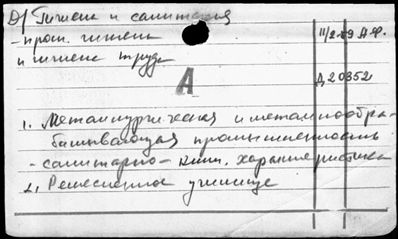 Д) Гигиена и санитария
11/2-59 А.Ф.
- пром. гигиена
и гигиена труда
А
Д 20352
1. Металлургическая и металлообра-
батывающая промышленность
- санитарно - гиги. характеристика
2. Ремесленное училище